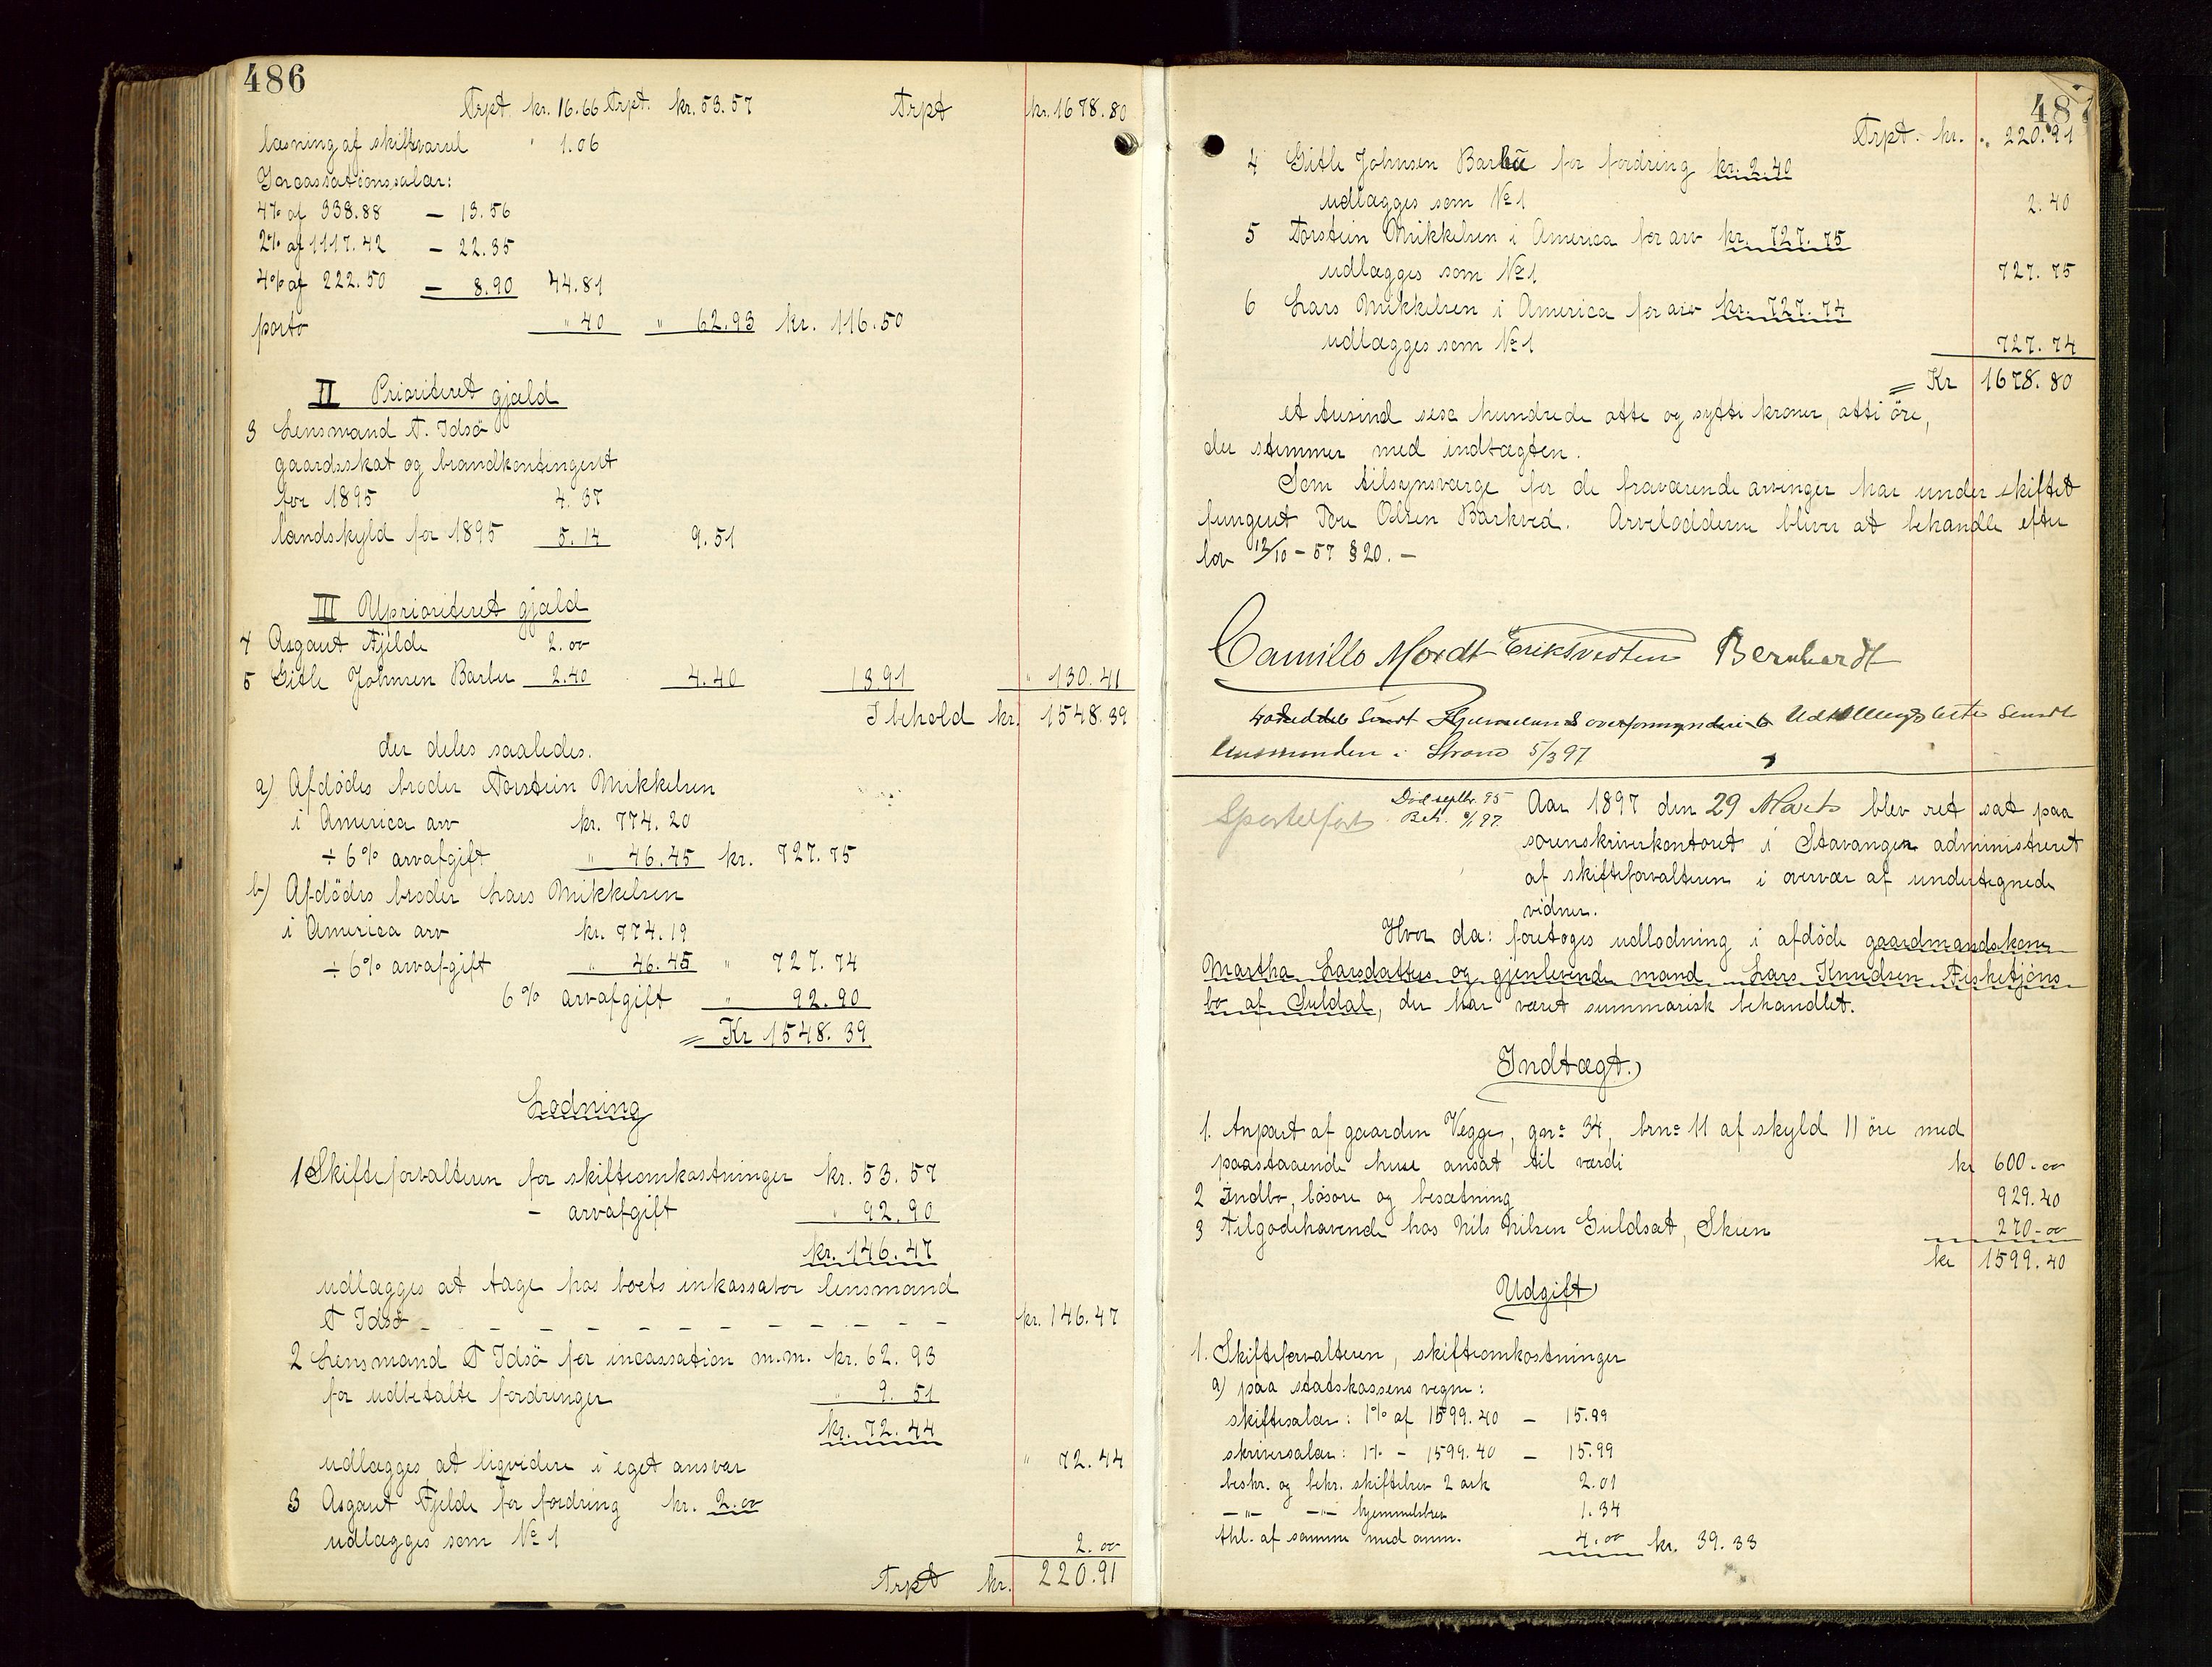 486
Trpt kr. 16.66 Trpt. kr. 53.57 Trpt kr. 1678.80
læsning af skiftevarsel " 1.06
Incassationssalær:
4% af 338.88 — 13.56
2% af 1117.42 — 22.35
4% af 222.50 — 8.90 44.81
porto " 40 " 62.93 kr. 116.50
II Prioriteret gjæld
3 Lensmand T. Idsö
gaardsskat og brandkontingent
for 1895 4.37
landskyld for 1895 5.14 9.51
III Uprioriteret gjæld
4 Asgaut Fjelde 2.00
5 Gitle Johnsen Barbu 2.40 4.40 13.91 " 130.41
I behold kr. 1548.39
der deles saaledes.
a) Afdödes broder Torstein Mikkelsen
i America arv kr. 774.20
÷ 6% arvafgift " 46.45 kr. 727.75
b) Afdödes broder Lars Mikkelsen
i America arv kr. 774.19
÷ 6% arvafgift " 46.45 " 727.74
6% arvafgift " 92.90
= Kr 1548.39
Lodning
1 Skifteforvalteren for skifteomkostninger kr. 53.57
— arvafgift " 92.90
kr. 146.47
udlægges at tage hos boets inkassator lensmand
T Idsö — — — — — — — — — — — — kr. 146.47
2 Lensmand T Idsö for incassation m.m. kr. 62.93
for udbetalte fordringer " 9.51
kr. 72.44
udlægges at liqvidere i eget ansvar " 72.44
3 Asgaut Fjelde for fordring kr. 2.00
udlægges som No 1 2.00
Trpt kr. 220.91
487
Trpt. kr. " 220.91
4 Gitle Johnsen Barbu for fordring kr. 2.40
udlægges som No 1 2.40
5 Torstein Mikkelsen i America for arv kr. 727.75
udlægges som No 1 727.75
6 Lars Mikkelsen i America for arv kr. 727.74
udlægges som No 1 727.74
= Kr 1678.80
et tusind sex hundrede otte og sytti kroner, otti öre,
der stemmer med indtægten.
Som tilsynsværge for de fraværende arvinger har under skiftet
fungeret Tore Olsen Barkved. Arvelodderne bliver at behandle efter
lov 12/10 – 57 § 20. —
Camillo Mordt Erik Bernhardt
sendt overformynderi Udlodningsliste sendt
lensmanden i Strand 5/3 97
Sportelfort Död septbr. 95
Aar 1897 den 29 Marts blev ret sat paa
sorenskriverkontoret i Stavanger administreret
af skifteforvalteren i overvær af undertegnede
vidner.
Hvor da: foretoges udlodning i afdöde gaardmandskone
Martha Larsdatters og gjenlevende mand Lars Knudsen Fisketjöns
bo af Suldal, der har været summarisk behandlet.
Indtægt.
1. Anpart af gaarden Vegge, gno 34, brno 11 af skyld 11 öre med
paastaaende huse ansat til værdi kr 600.00
2 Indbo, lösöre og besætning 929.40
3 Tilgodehavende hos Nils Nilsen Guldsæt, Skien 270.00
kr 1599.40
Udgift
1. Skifteforvalteren, skifteomkostninger
a) paa statskassens vegne:
skiftesalær: 1% af 1599.40 — 15.99
skriversalær: 1% – 1599.40 — 15.99
beskr. og bekr. skiftebrev 2 ark 2.01
—"— —"— hjemmelsbrev 1.34
thl. af samme med anm. 4.00 kr. 39.33